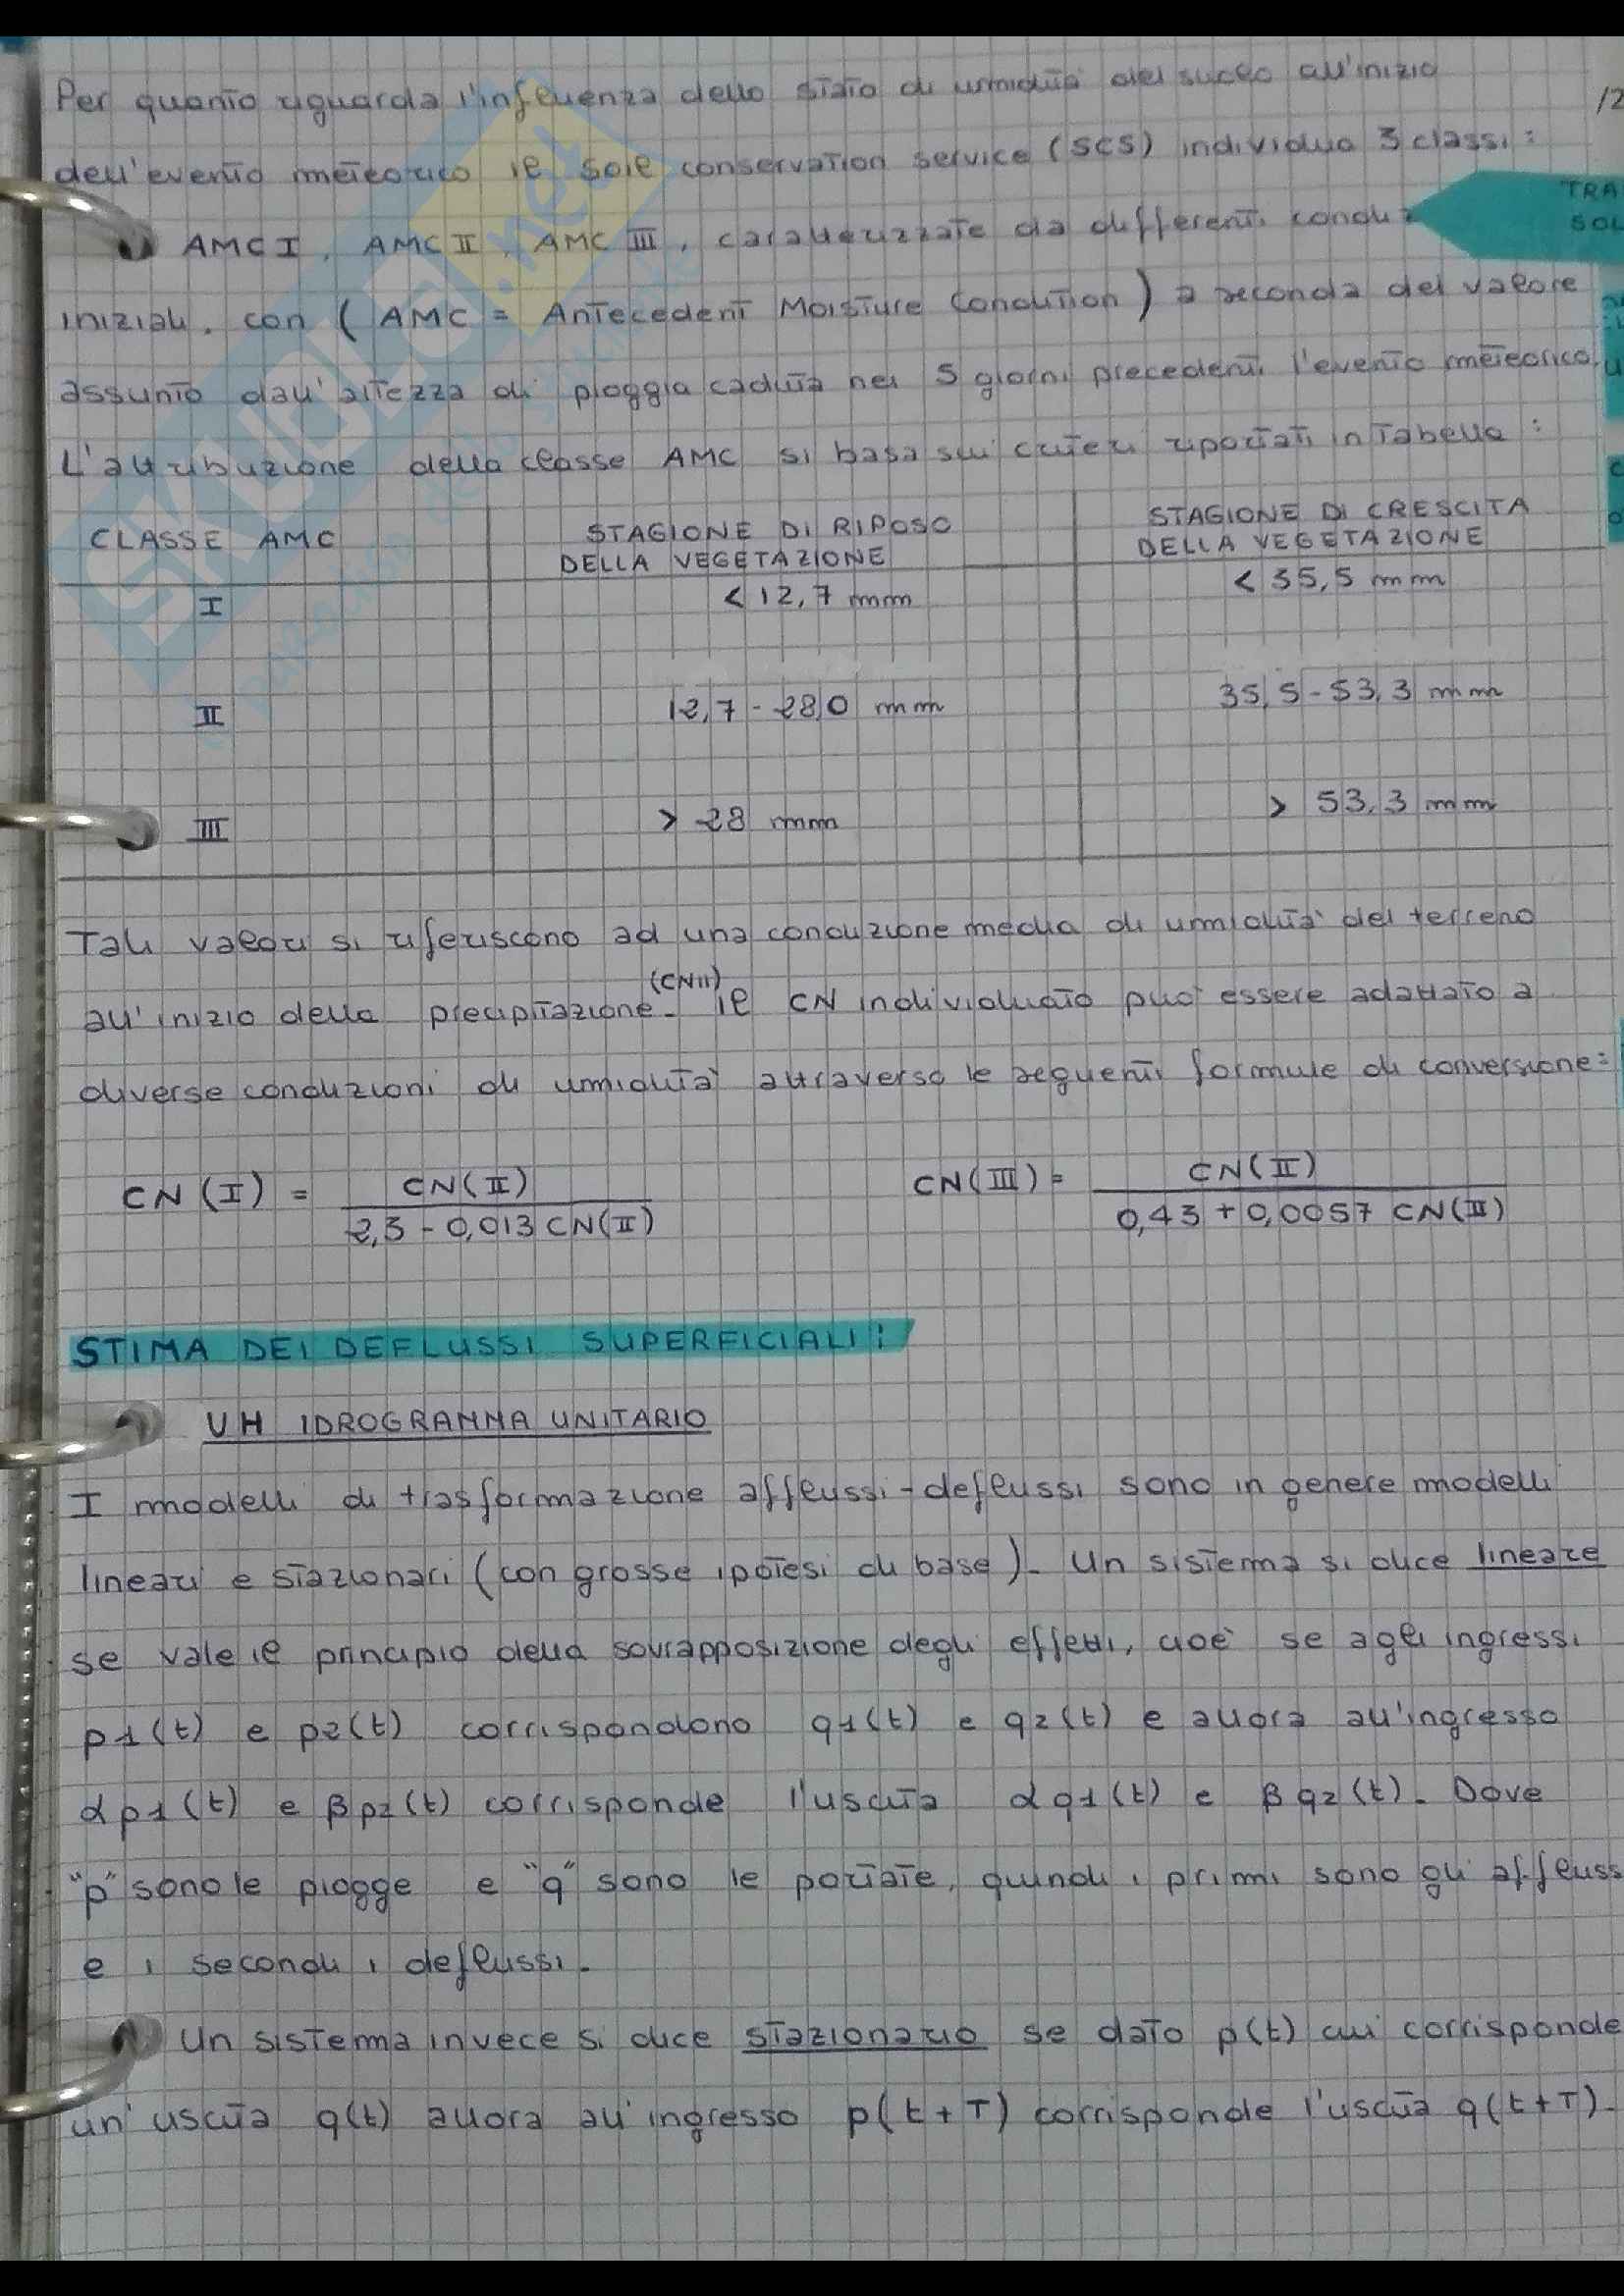 Per quanto riguarda l'influenza dello stato di umidità del suolo all'inizio
/2
dell'evento meteorico il soil conservation service (SCS) individua 3 classi:
TRA
SOL
AMC I, AMC II, AMC III, caratterizzate da differenti condiz
iniziali, con (AMC = Antecedent Moisture Condition) a seconda del valore
assunto dall'altezza di pioggia caduta nei 5 giorni precedenti l'evento meteorico.
L'attribuzione della classe AMC si basa sui criteri riportati in Tabella:
CLASSE AMC STAGIONE DI RIPOSO DELLA VEGETAZIONE STAGIONE DI CRESCITA DELLA VEGETAZIONE
I < 12,7 mm < 35,5 mm
II 12,7 - 28,0 mm 35,5 - 53,3 mm
III > 28 mm > 53,3 mm
Tali valori si riferiscono ad una condizione media di umidità del terreno
(CNII)
all'inizio della precipitazione. Il CN individuato può essere adattato a
diverse condizioni di umidità attraverso le seguenti formule di conversione:
CN (I) = CN(II) / 2,3 - 0,013 CN(II) CN(III) = CN(II) / 0,43 + 0,0057 CN(II)
STIMA DEI DEFLUSSI SUPERFICIALI:
UH IDROGRAMMA UNITARIO
I modelli di trasformazione afflussi-deflussi sono in genere modelli
lineari e stazionari (con grosse ipotesi di base). Un sistema si dice lineare
se vale il principio della sovrapposizione degli effetti, cioè se agli ingressi
p1(t) e p2(t) corrispondono q1(t) e q2(t) e allora all'ingresso
α p1(t) e β p2(t) corrisponde l'uscita α q1(t) e β q2(t). Dove
"p" sono le piogge e "q" sono le portate, quindi i primi sono gli affluss
e i secondi i deflussi.
Un sistema invece si dice stazionario se dato p(t) cui corrisponde
un'uscita q(t) allora all'ingresso p(t+T) corrisponde l'uscita q(t+T).